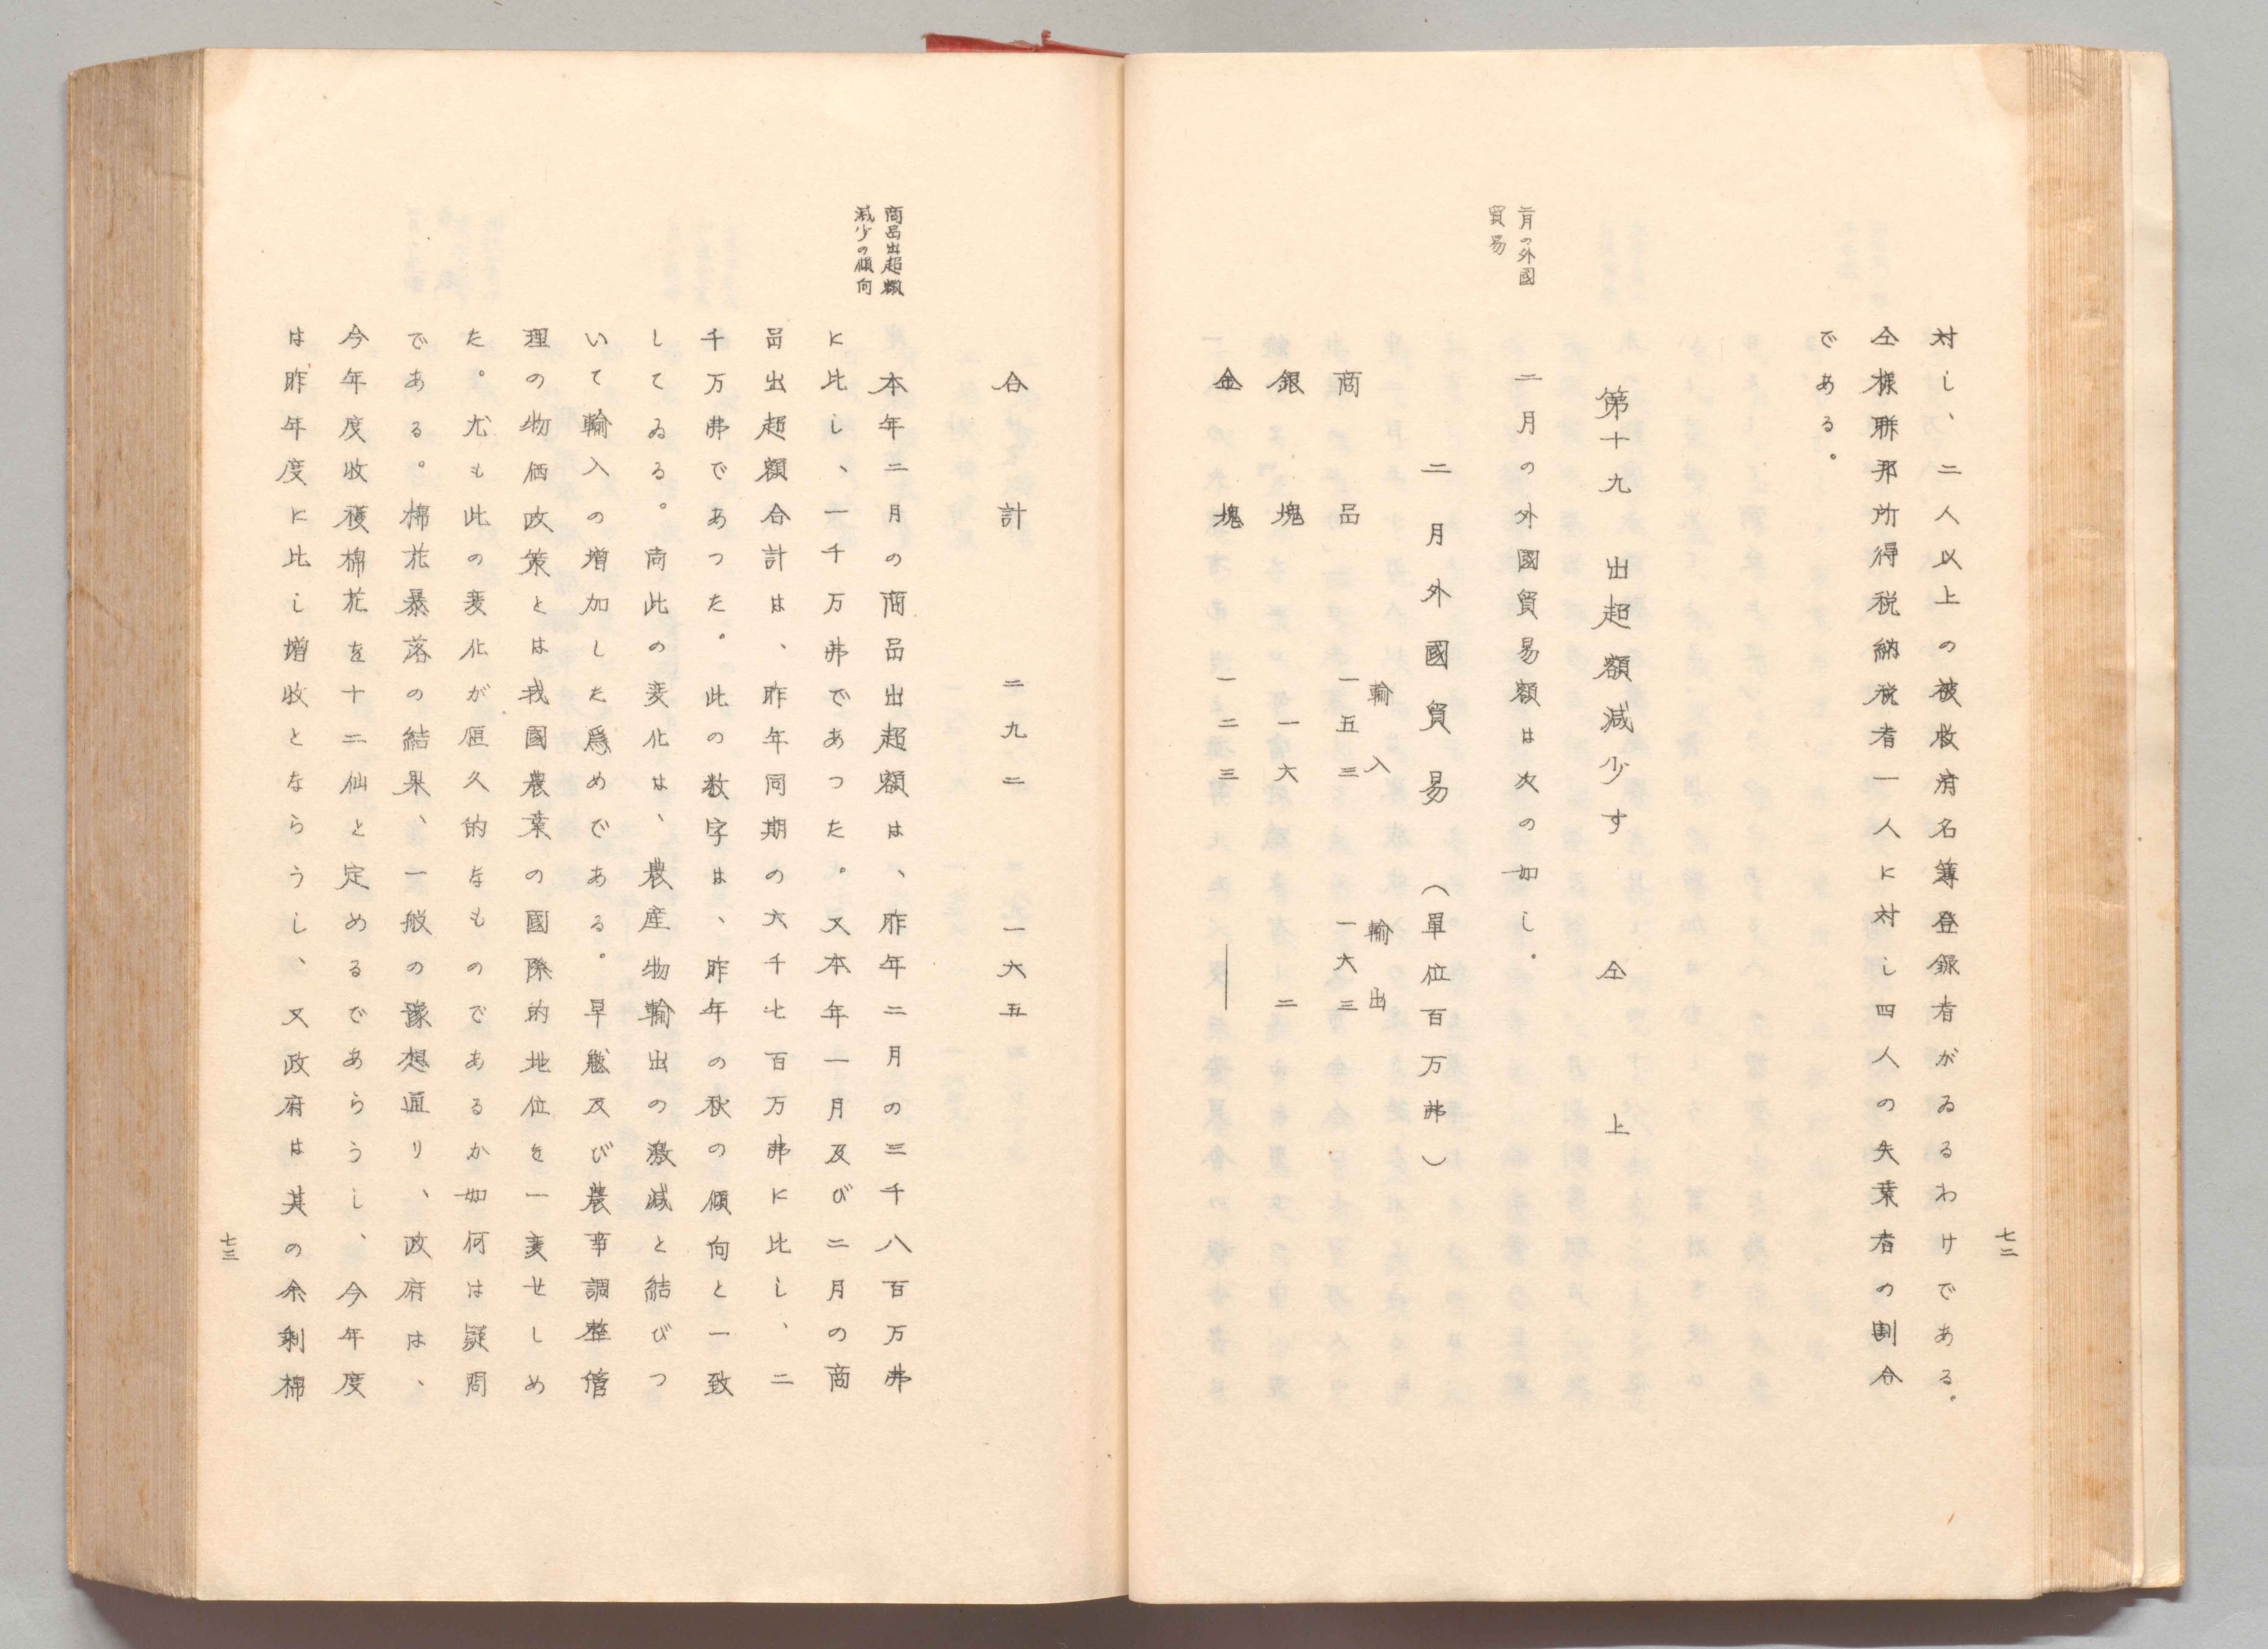 七二
対し、二人以上の被救済名簿登録者がゐるわけである。
仝様聯邦所得税納税者一人に対し四人の失業者の割合
である。
第十九　出超額減少す　仝　上
二月の外國
貿易
二月の外國貿易額は次の如し。
二月外國貿易　（單位百万弗）
輸入　輸出
商品　一五三　一六三
銀塊　一六　二
金塊　一二三　―
合計　二九二　一六五
商品出超額
減少の傾向
本年二月の商品出超額は、昨年二月の三千八百万弗
に比し、一千万弗であつた。又本年一月及び二月の商
品出超額合計は、昨年同期の六千七百万弗に比し、二
千万弗であつた。此の数字は、昨年の秋の傾向と一致
してゐる。商此の変化は、農産物輸出の激減と結びつ
いて輸入の増加した爲めである。旱魃及び農事調整管
理の物価政策とは我國農業の國際的地位を一変せしめ
た。尤も此の変化が恒久的なものであるか如何は疑問
である。棉花暴落の結果、一般の豫想通り、政府は、
今年度收穫棉花を十二仙と定めるであらうし、今年度
は昨年度に比し増收とならうし、又政府は其の余剰棉
七三